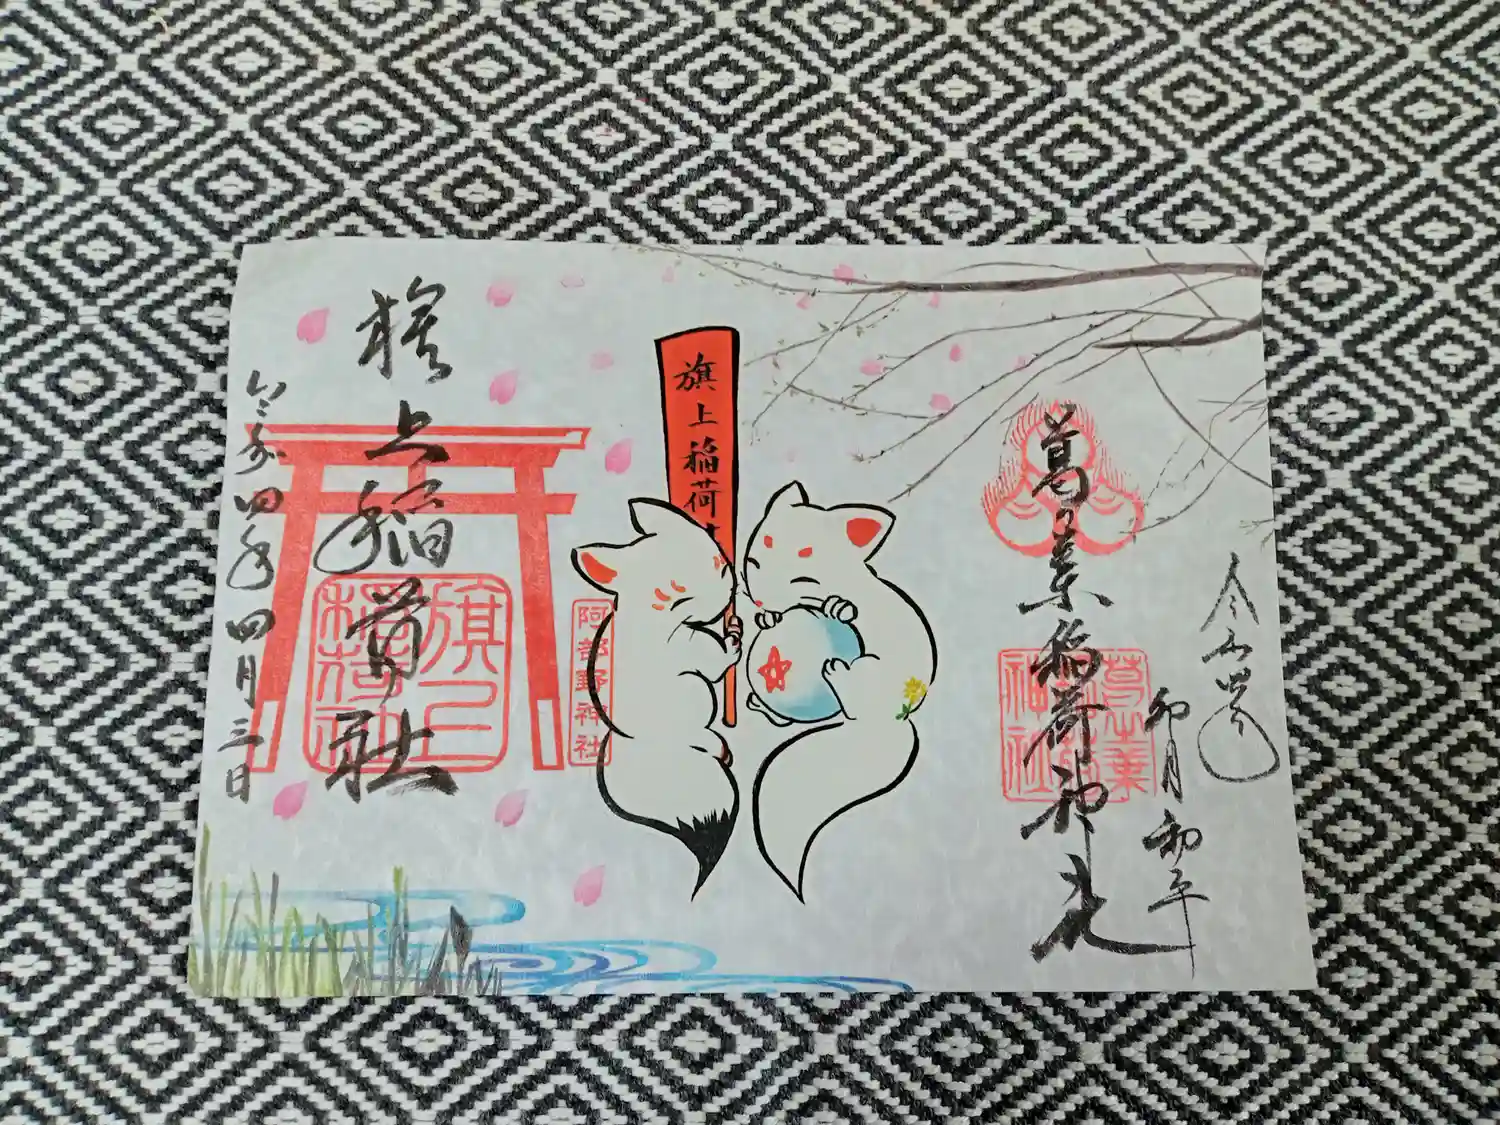 令和四年
卯月初午
葛之葉稲荷神社
葛之葉
稲荷社
旗上稲荷
阿部野神社
旗上稲荷社
旗上
稲荷社
令和四年四月三日